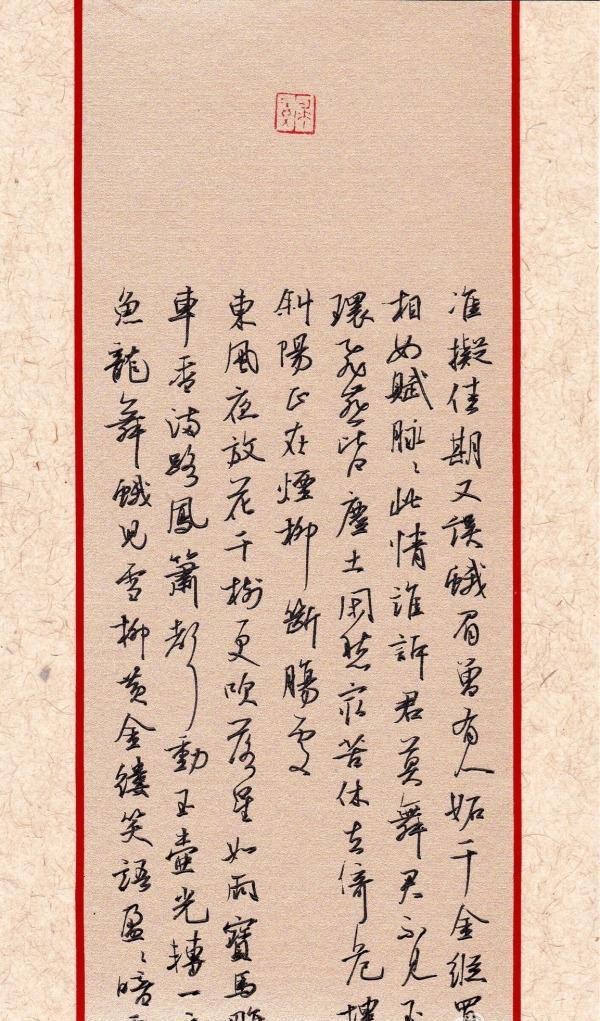 准擬佳期又誤蛾眉曾有人妬千金縱買
相如賦脉〻此情誰訴君莫舞君不見玉
環飛燕皆塵土闲愁最苦休去倚危樓
斜陽正在煙柳斷腸處
東風夜放花千樹更吹落星如雨寶馬雕
車香滿路鳳簫聲動玉壺光轉一
魚龍舞蛾兒雪柳黄金縷笑語盈〻暗